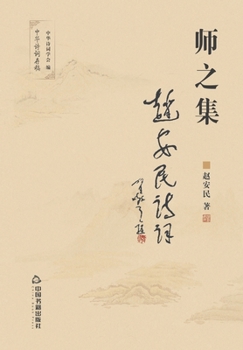 中华诗词学会 编
中华诗词存稿
师之集
趙安民詩詞
赵安民 著
中国书籍出版社